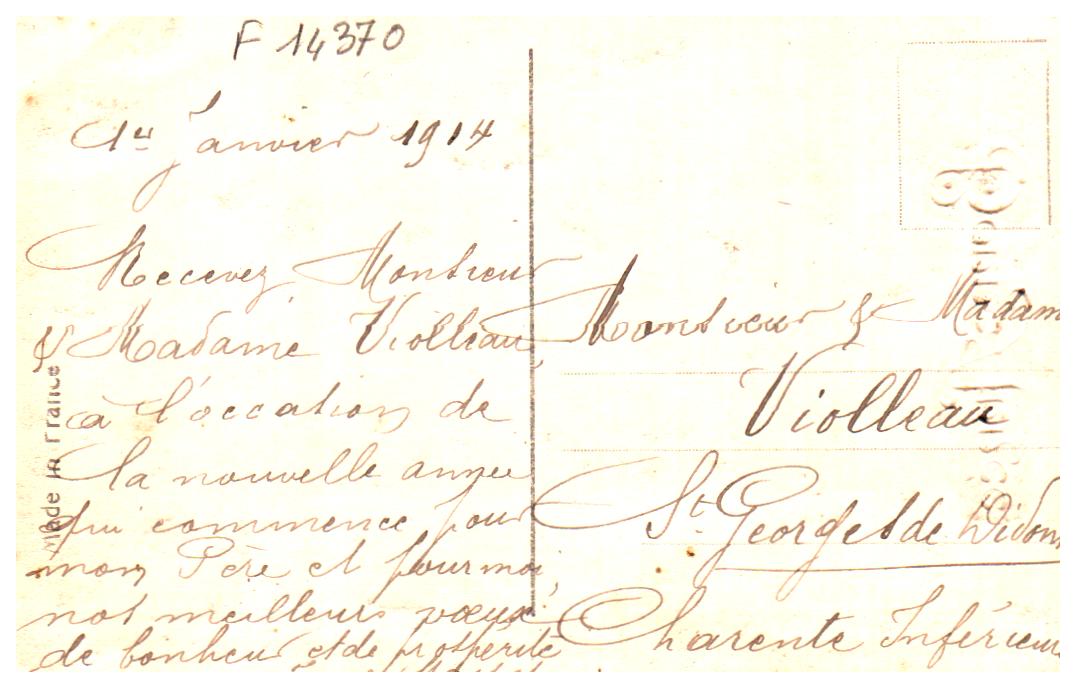 F 14370
1er Janvier 1914
Recevez Monsieur
& Madame Violleau,
à l'occasion de
la nouvelle année
qui commence pour
mon Père et pour moi,
nos meilleurs vœux
de bonheur et de prospérité
Made in France
Monsieur & Madam
Violleau
St Georges de Didon
Charente Inférieu